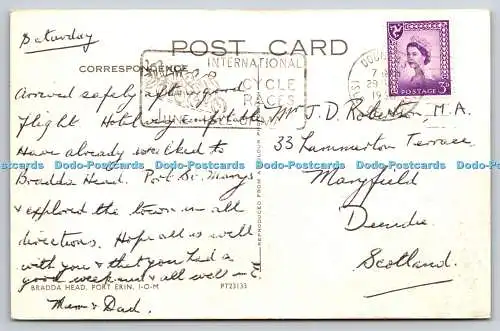 Saturday
POST CARD
CORRESPONDENCE
INTERNATIONAL
CYCLE
RACE
POSTAGE 3D
Arrived safely after good
flight Hotel very comfortable
Have already walked to
Bradda Head. Port St. Marys
& explored the town in all
directions. Hope all is well
with you & that you had a
good week and all well
Mum & Dad.
Mr J. D. Robertson, M.A.
33 Lammerton Terrace
Maryfield
Dundee
Scotland.
BRADDA HEAD, PORT ERIN, I-O-M
PT23135
Dodo-Postcards Dodo-Postcards Dodo-Postcards Dodo-Postcards Dodo-Postcards